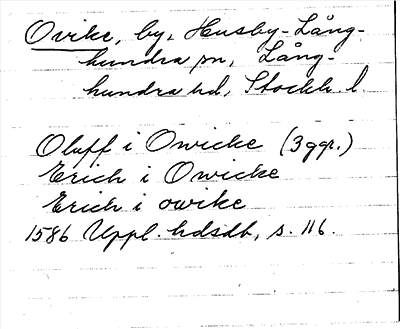 Ovike, by, Husby-Lång-
hundra sn, Lång-
hundra hd, Stockh. l.
Oluff i Owicke (3 ggr.)
Erich i Owicke
Erich i owike
1586 Uppl. hdsdb, s. 116.